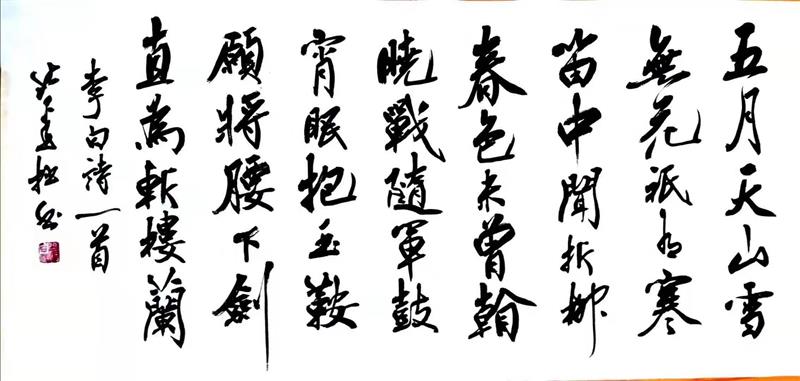 五月天山雪
無花祇有寒
笛中聞折柳
春色未曾翰
曉戰隨軍鼓
宵眠抱玉鞍
願將腰下劍
直為斬樓蘭
李白詩一首